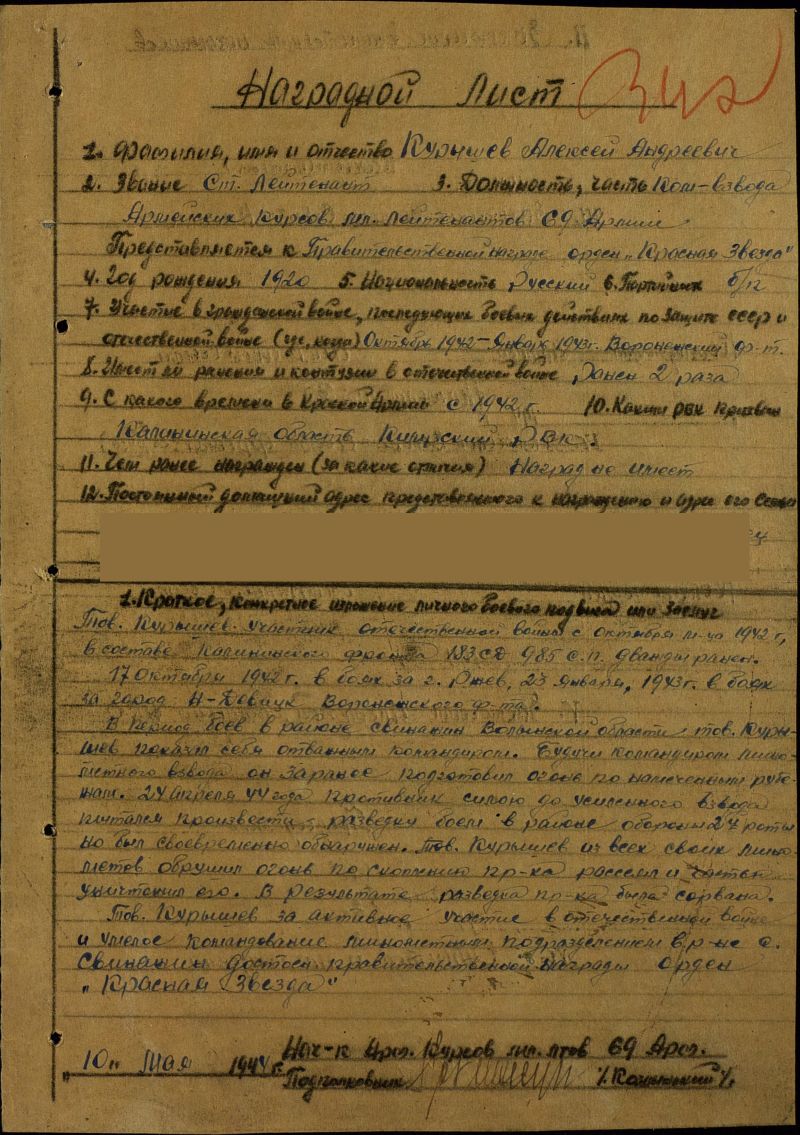 Наградной Лист
1. Фамилия, имя и отчество Курышев Алексей Андреевич
2. Звание Ст. Лейтенант 3. Должность, часть Ком-взвода
Армейских Курсов мл. Лейтенантов 69 Армии
Представляется к Правительственной награде орден „Красная Звезда"
4. Год рождения 1920 5. Национальность Русский 6. Партийных б/п
7. Участие в гражданской войне, последующих боевых действиях по защите СССР и
отечественной войне (где, когда) Октябрь 1942 - Январь 1943 г. Воронежский ф-т.
8. Имеет ли ранения и контузии в отечественной войне Ранен 2 раза
9. С какого времени в Красной Армии с 1942 г. 10. Каким РВК призван
Калининская область РВК
11. Чем ранее награжден (за какие отличия) Наград не имеет
12. Постоянный домашний адрес представленного к награждению и адрес его семьи
1. Краткое, конкретное изложение личного боевого подвига или заслуг
Тов. Курышев участник отечественной войны с октября м-ца 1942 г,
в составе Калининского фронта СД 985 с.п. дважды ранен.
17 октября 1942 г. в боях за г. Ржев, 23 января, 1943 г. в боях
за город Н-Девицк Воронежского ф-та.
В период боев в районе Свинажин Волынской области тов. Куры-
шев показал себя отважным командиром. Будучи командиром мино-
метного взвода он заранее подготовил огонь по намеченным рубе-
жам. 24 апреля 44 года противник силою до усиленного взвода
пытался произвести разведку боем в районе обороны 27 роты
но был своевременно обнаружен. Тов. Курышев из всех своих мино-
метов обрушил огонь по скоплению пр-ка рассеял и частью
уничтожил его. В результате разведка пр-ка была сорвана.
Тов. Курышев за активное участие в отечественной войне
и умелое командование минометным подразделением в р-не с.
Свинажин достоен правительственной награды орден
„Красная Звезда"
Нач-к Арм. Курсов мл. л-тов 69 Арм.
„10" Мая 1944 г.
Подполковник